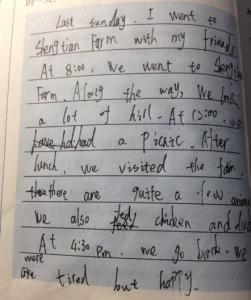 Last sunday. I went to
Shengtian Farm with my friends
At 8:00, We went to Shengtian
Farm. Along the way, We
a lot of hill. At 12:00 we
had a picnic. After
lunch, we visited the farm.
there are quite a few
We also chicken and
At 4:30 pm. we go back. We
were tired but happy.